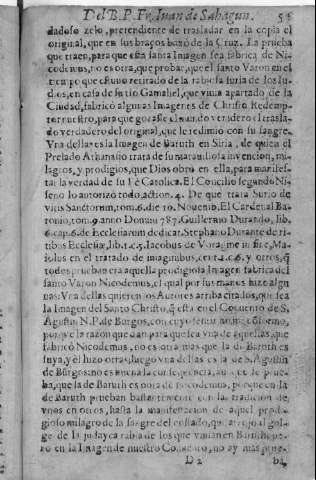 Del B. P. Fr. Iuan de Sahagun.
dadoso zelo, pretendiente de trasladar en la copia el
original, que en sus braços baxó de la Cruz. La prueba
que traen, para que esta santa Imagen sea fabrica de Ni-
codemus, no es otra, que probar, que el santo Varon en el
tiempo que estuuo retirado de la rabiosa furia de los Iu-
dios, en casa de su tio Gamaliel, que viuia apartado de la
Ciudad, fabricó algunas Imagenes de Christo Redemp-
tor nuestro, para que gozasse el mundo verdero trasla-
do verdadero del original, que le redimió con su sangre.
Vna dellas es la Imagen de Baruth en Siria, de quien el
Prelado Athanasio trata de su marauillosa invencion, mi-
lagros, y prodigios, que Dios obró en ella, para manifes-
tar la verdad de su Fé Catolica. El Concilio segundo Ni-
seno lo autorizó todo, action. 4. De que trata Surio de
vitis Sanctorum, tom. 6. die 10. Nouemb. El Cardenal Ba-
ronio, tom. 9. anno Domini 787. Guillermo Durando, lib.
6. cap. 6. de Ecclesiarum dedicat. Stephano Durante de ri-
tibus Ecclesiæ, lib. 1. c. 5. Iacobus de Voragine in Ma-
iolus en el tratado de imaginibus, cent. 2. c. 6. y otros, q̃
todos prueban era aquella prodigiosa Imagen fabrica del
santo Varon Nicodemus, el qual por sus manos hizo algu-
nas: Vna dellas quieren los Autores arriba citados, que sea
la Imagen del Santo Christo, q̃ está en el Conuento de S.
Agustin N. P. de Burgos, con cuyo sentir no me conformo,
porque la razon que dan para que sea vna de aquellas, que
fabricó Nicodemus, no es otra mas que la de Baruth es
suya, y él hizo otras, luego vna dellas es la de S. Agustin
de Burgos: no es buena la consequencia, aunque se prue-
ba, que la de Baruth es obra de Nicodemus, porque en la
de Baruth prueban bastantemente con la tradicion de
vnos en otros, hasta la manifestacion de aquel prodi-
gioso milagro de la sangre del costado, que arrojó al gol-
pe de la judayca rabia de los que viuian en Baruth: pe-
ro en la Imagen de nuestro Conuento, no ay mas prue-
D 2 ba,